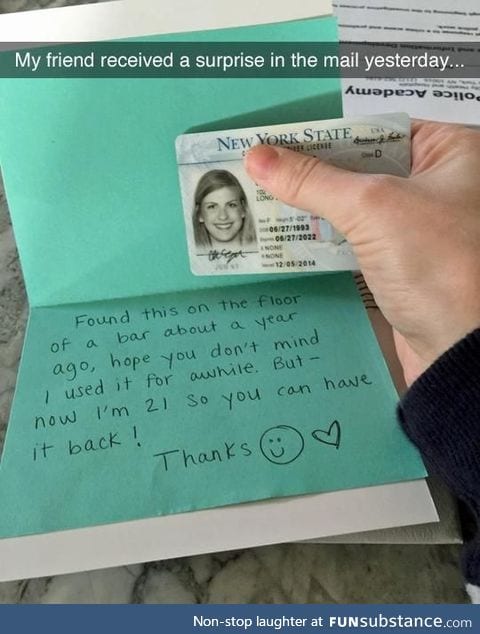 My friend received a surprise in the mail yesterday...
Police Academy
NEW YORK STATE
USA
LICENSE
Class D
Sex F Height 5'-02"
DOB 06/27/1993
Expires 06/27/2022
E NONE
R NONE
Issued 12/05/2014
JUN 93
Found this on the floor
of a bar about a year
ago, hope you don't mind
I used it for awhile. But-
now I'm 21 so you can have
it back!
Thanks
Non-stop laughter at FUNsubstance.com